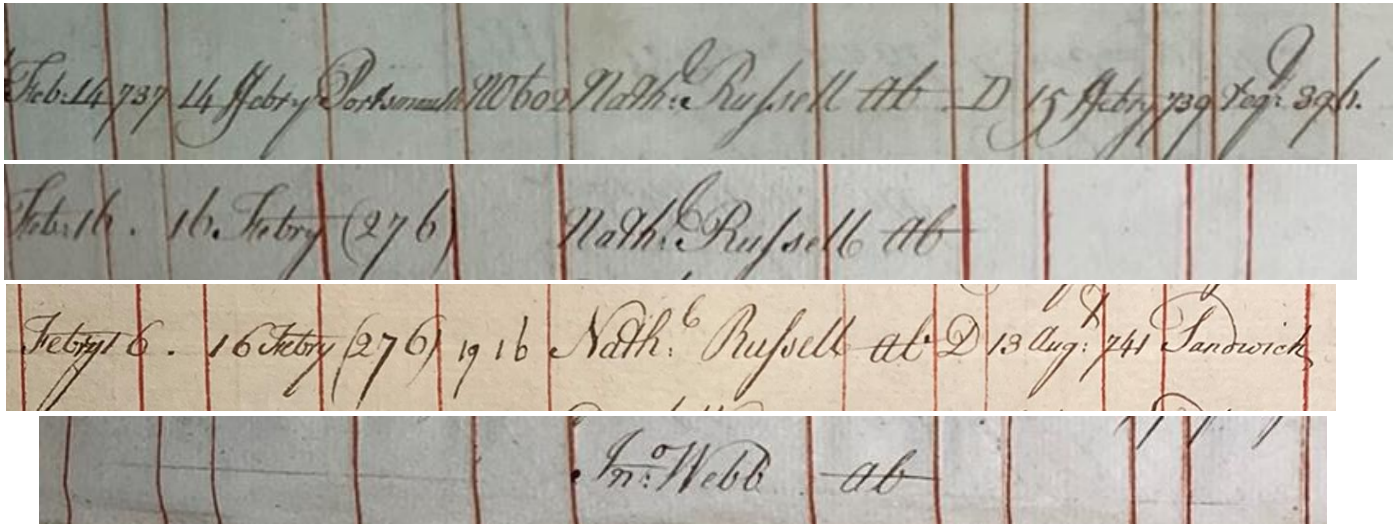 Feb: 14 737 14 Febry Portsmouth No 602 Nath:l Russell ab D 15 Febry 739 Togr: 396.
Feb: 16. 16. Febry (276) Nath:l Russell ab
Febry 16. 16 Febry (276) 19 16 Nath:l Russell ab D 13 Aug: 741 Sandwich
Jno: Webb ab